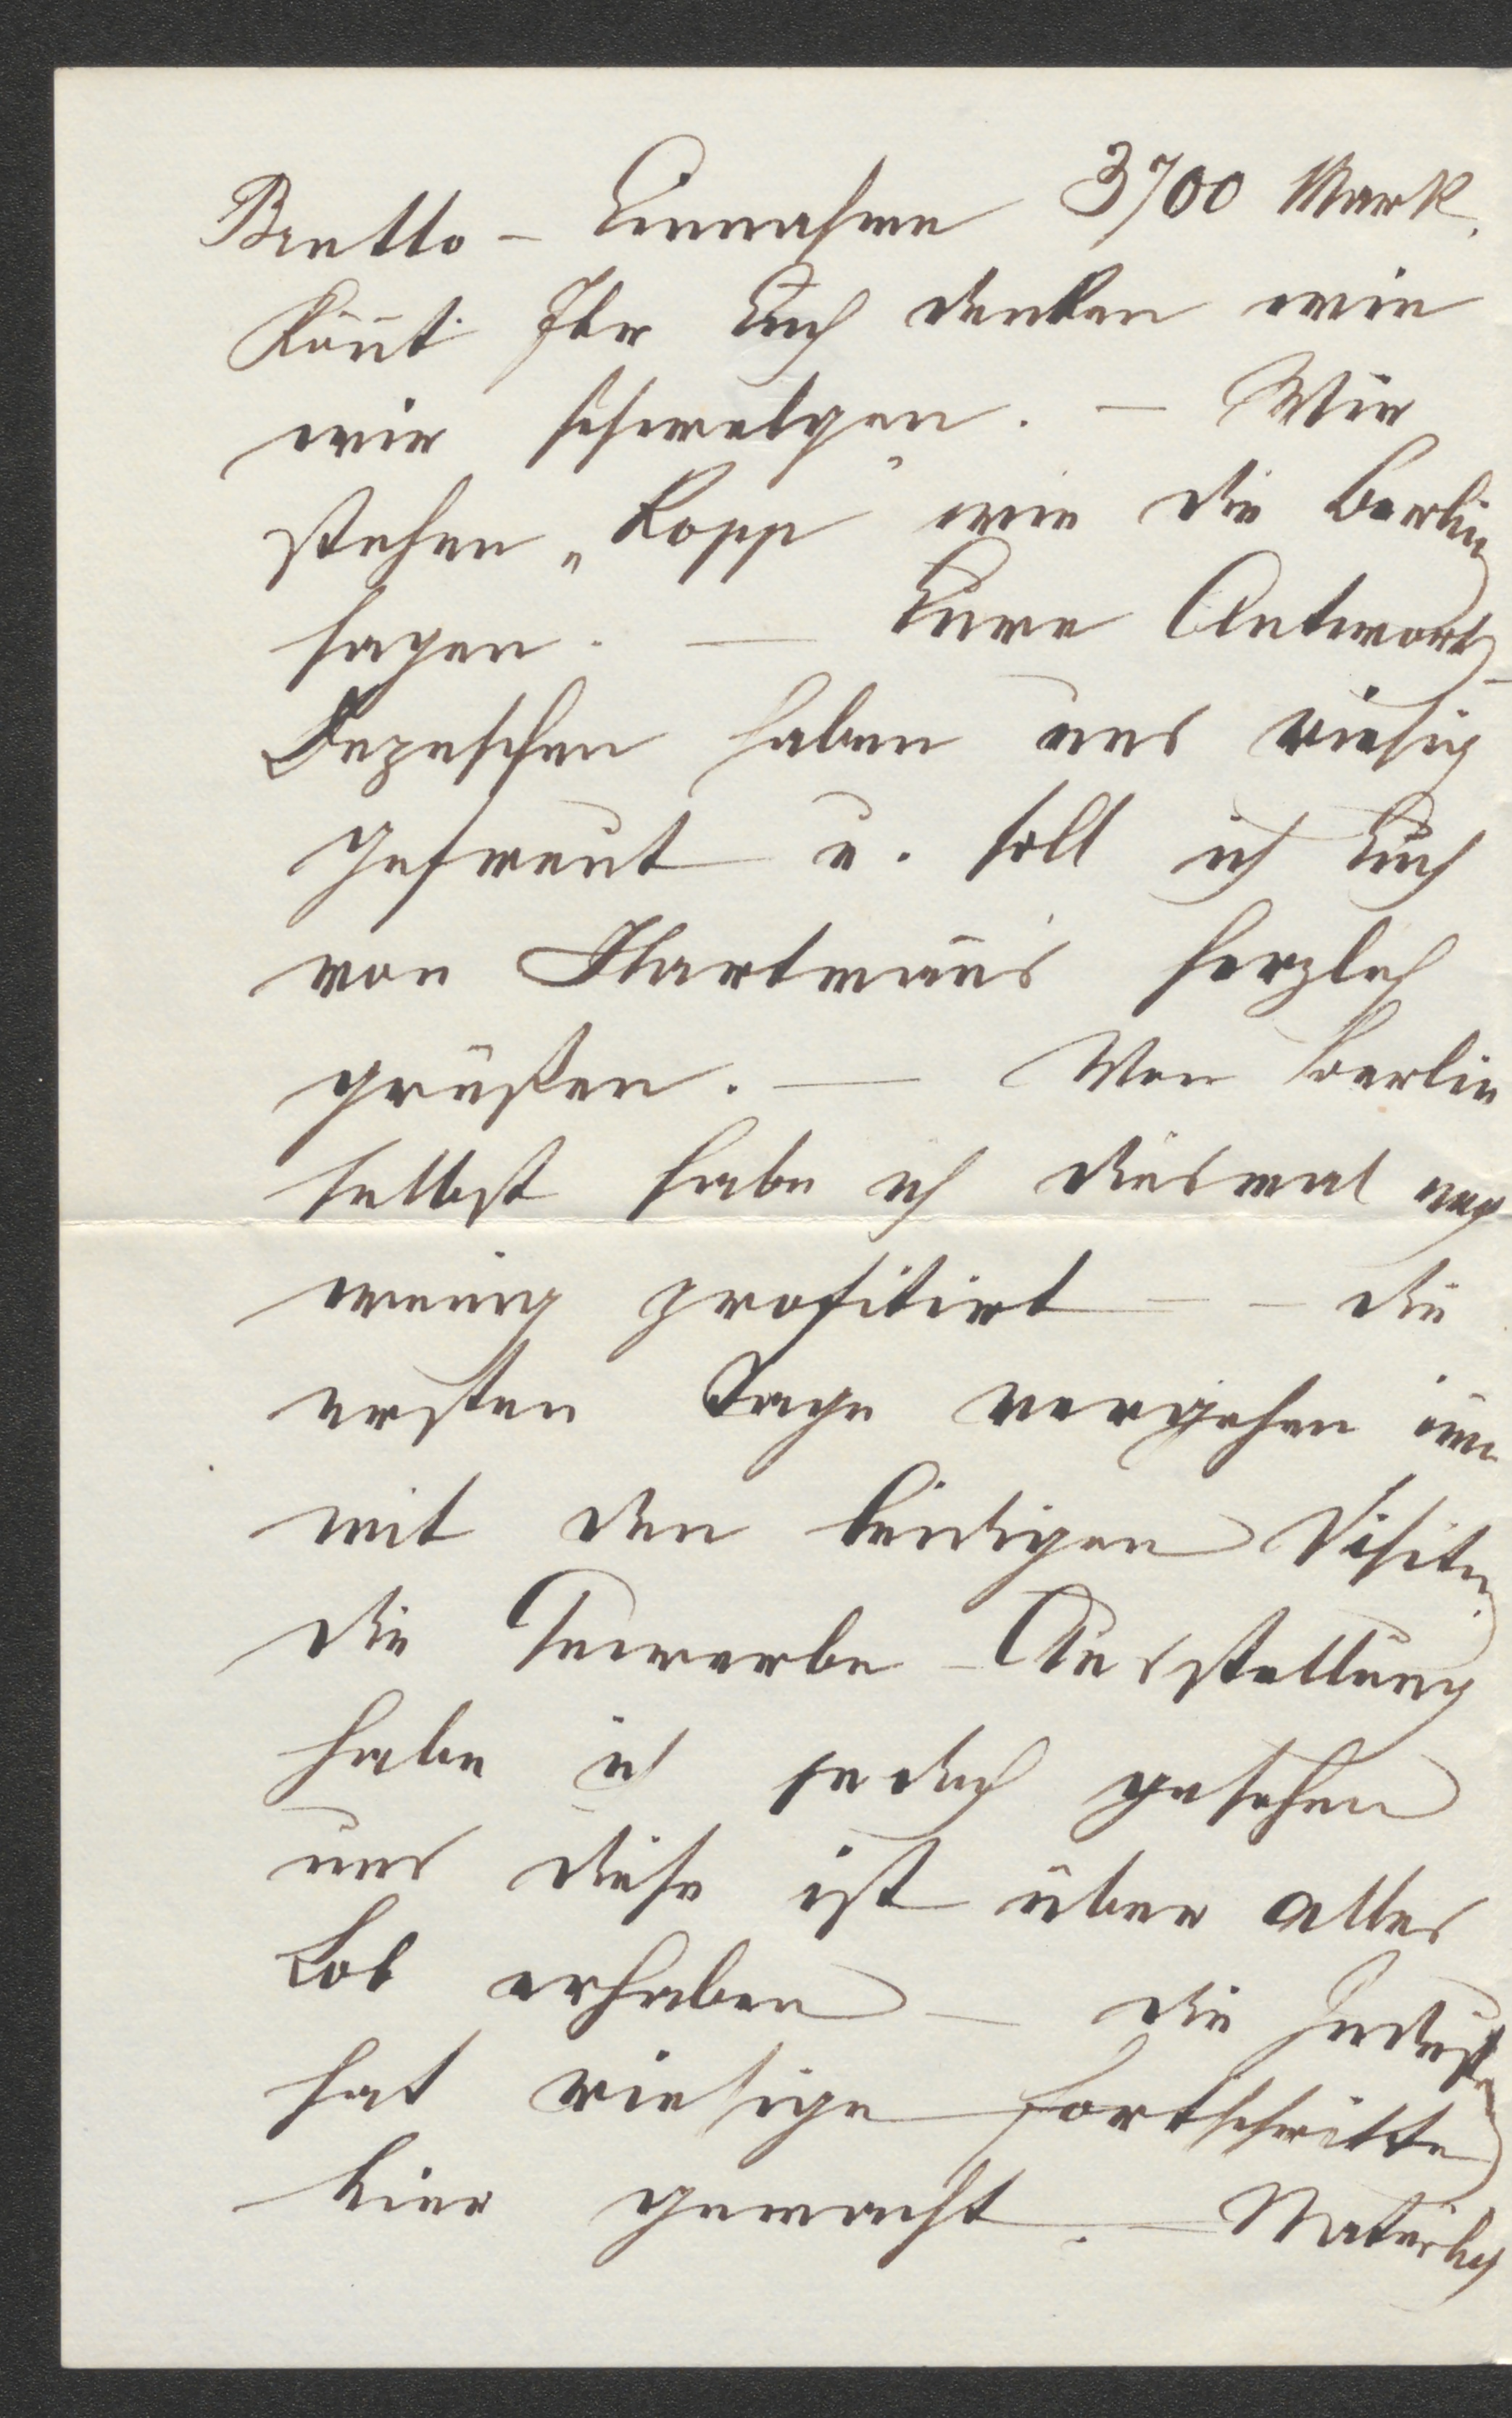 Brutto – Einnahme 3700 Mark.
Könnt Ihr Euch denken wie
wir schwelgen. – Wir
stehen „Kopp“ wie die Berlin
sagen. — Eure Antwort-
Depeschen haben uns riesig
gefreut u. soll ich Euch
von Hartmann's herzlich
grüßen. — Von Berlin
selbst habe ich diesmal
wenig profitirt – – die
ersten Tage vergehen
mit den leidigen Visiten
die Gewerbe-Ausstellung
habe ich jedoch gesehen
und diese ist über alles
Lob erhaben — die
hat riesige Fortschritte
hier gemacht. – Natürlich